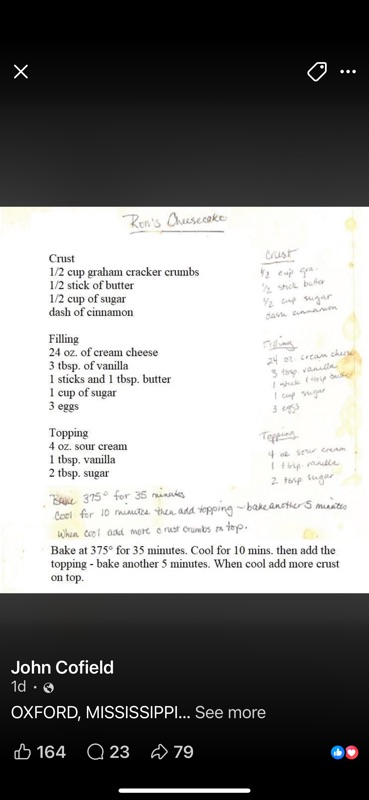 Ron's Cheesecake
Crust
1/2 cup graham cracker crumbs
1/2 stick of butter
1/2 cup of sugar
dash of cinnamon
Filling
24 oz. of cream cheese
3 tbsp. of vanilla
1 sticks and 1 tbsp. butter
1 cup of sugar
3 eggs
Topping
4 oz. sour cream
1 tbsp. vanilla
2 tbsp. sugar
Crust
1/2 cup gra.
1/2 stick butter
1/2 cup sugar
dash cinnamon
Filling
24 oz. cream cheese
3 tbsp. vanilla
1 stick 1 tbsp
1 cup sugar
3 eggs
Topping
4 oz sour cream
1 tbsp. vanilla
2 tbsp. sugar
Bake 375° for 35 minutes
Cool for 10 minutes then add topping ~ bake another 5 minutes
When cool add more crust crumbs on top.
Bake at 375° for 35 minutes. Cool for 10 mins. then add the
topping - bake another 5 minutes. When cool add more crust
on top.
John Cofield
1d ·
OXFORD, MISSISSIPPI... See more
164 23 79